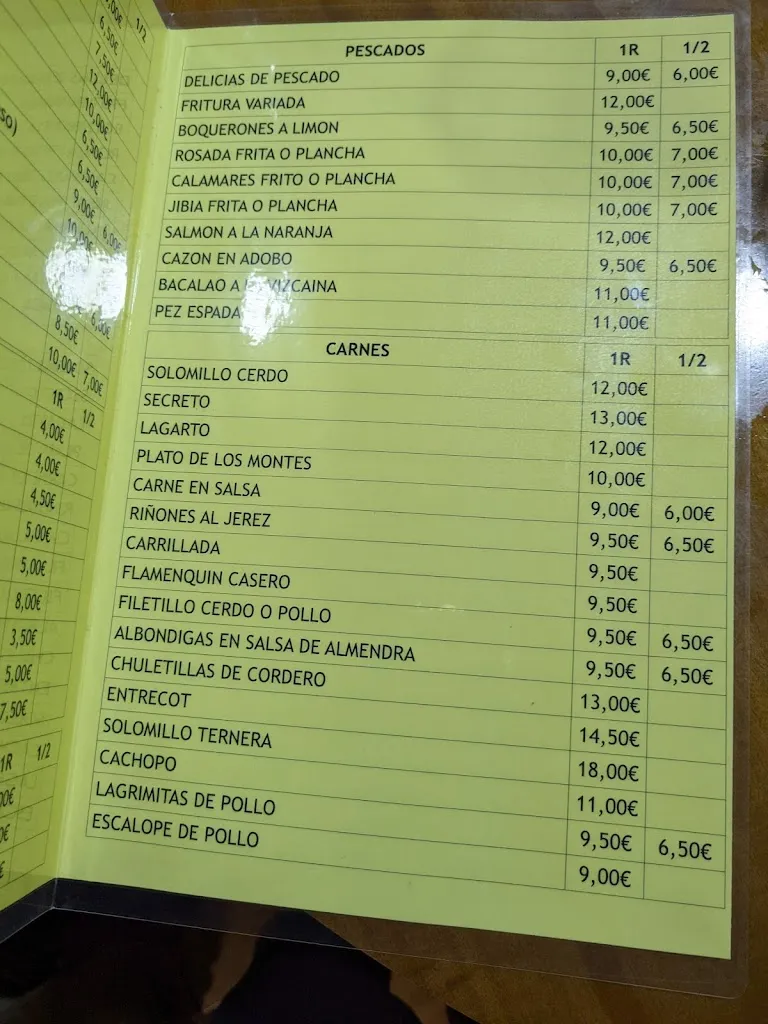 ,00€ 1/2
6,50€
7,50€
12,00€
10,00€
6,50€
so)
6,50€
9,00€ 6,00€
10,00€
6,00€
8,50€
10,00€ 7,00€
1R 1/2
4,00€
4,00€
4,50€
5,00€
5,00€
8,00€
3,50€
5,00€
7,50€
1R 1/2
00€
0€
€
PESCADOS 1R 1/2
DELICIAS DE PESCADO 9,00€ 6,00€
FRITURA VARIADA 12,00€
BOQUERONES A LIMON 9,50€ 6,50€
ROSADA FRITA O PLANCHA 10,00€ 7,00€
CALAMARES FRITO O PLANCHA 10,00€ 7,00€
JIBIA FRITA O PLANCHA 10,00€ 7,00€
SALMON A LA NARANJA 12,00€
CAZON EN ADOBO 9,50€ 6,50€
BACALAO A VIZCAINA 11,00€
PEZ ESPADA 11,00€
CARNES 1R 1/2
SOLOMILLO CERDO 12,00€
SECRETO 13,00€
LAGARTO 12,00€
PLATO DE LOS MONTES 10,00€
CARNE EN SALSA 9,00€ 6,00€
RIÑONES AL JEREZ 9,50€ 6,50€
CARRILLADA 9,50€
FLAMENQUIN CASERO 9,50€
FILETILLO CERDO O POLLO 9,50€ 6,50€
ALBONDIGAS EN SALSA DE ALMENDRA 9,50€ 6,50€
CHULETILLAS DE CORDERO 13,00€
ENTRECOT 14,50€
SOLOMILLO TERNERA 18,00€
CACHOPO 11,00€
LAGRIMITAS DE POLLO 9,50€ 6,50€
ESCALOPE DE POLLO 9,00€